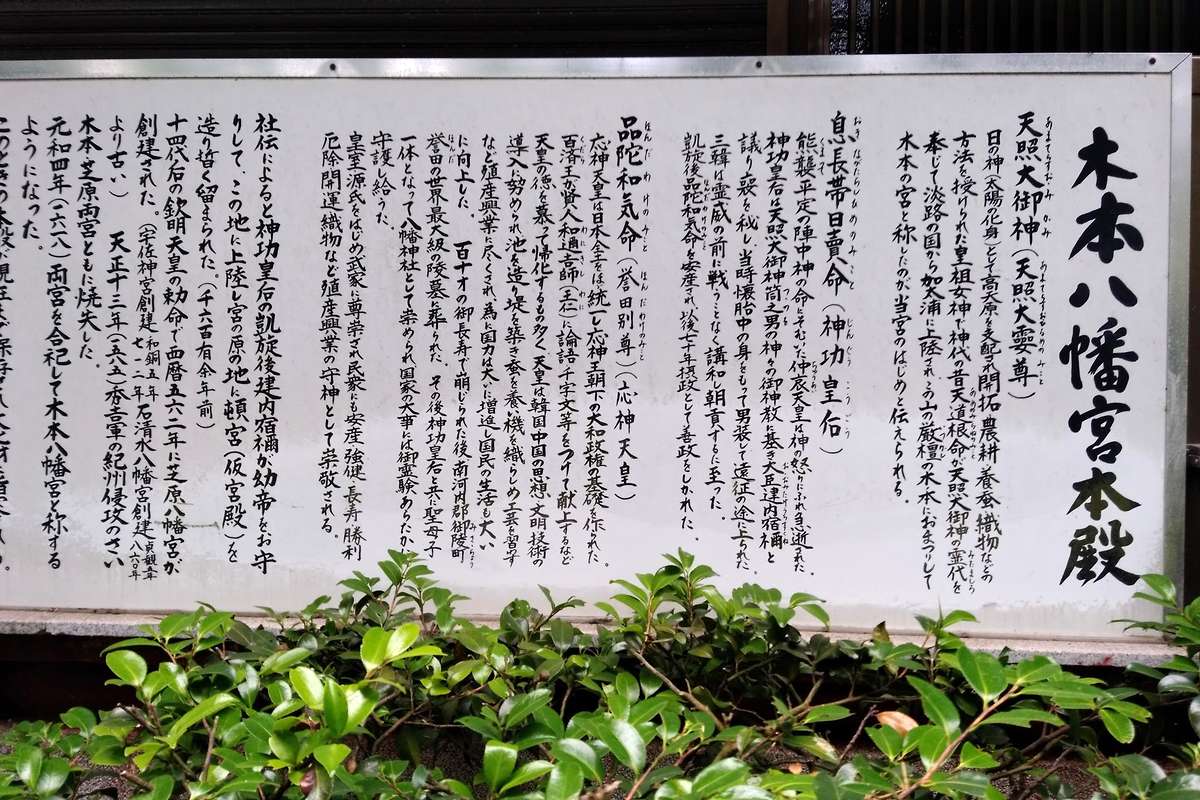 木本八幡宮本殿
天照大御神(天照大孁尊)
日の神(太陽の化身)として高天原を支配され開拓、農耕、養蚕、織物などの
方法を授けられた皇祖女神で神代の昔天道根命が天照大御神の霊代を
奉じて淡路の国から加太浦に上陸されこの山の厳橿の木本におまつりして
木本の宮と称したのが当宮のはじめと伝えられる。
息長帯日賣八命(神功皇后)
熊襲平定の陣中神の命にそむいた仲哀天皇は神の怒りにふれ急逝された。
神功皇后は天照大御神筒之男の神々の御神教に基き大臣建内宿禰と
議り喪を秘し、当時懐胎中の身をもって男装して遠征の途に上られた。
三韓は霊威の前に戦うことなく講和し朝貢するに至った。
凱旋後品陀和気命を安産され以後七十年摂政として善政をしかれた。
品陀和気命(誉田別尊)(応神天皇)
応神天皇は日本全土をほゞ統一し応神王朝下の大和政権の基礎を作られた。
百済王が賢人和邇吉師(王仁)に論吾千字文等をつけて献上するなど
天皇の徳を慕って帰化するもの多く天皇は韓国中国の思想、文明技術の
導入に努められ池を造り堤を築き蚕を養い機を織らしめ工芸を習す
など殖産興業に尽くされ為に国力は大いに増進し国民の生活も大い
に向上した。 百十才の御長寿で崩じられた後南河内郡御陵町
誉田の世界最大級の陵墓に葬られた。その後神功皇后と共に聖母子
一体となって八幡神社として崇められ国家の大事には御霊験あらたかに
守護し給うた。
皇室源氏をはじめ武家に尊崇され民衆にも安産強健、長寿、勝利
厄除開運織物など殖産興業の守神として崇敬される。
社伝によると神功皇后の凱旋後建内宿禰が幼帝をお守
りして、この地に上陸し宮の原の地に頓宮(仮宮殿)を
造り暫く留まられた。(千六百有余年前)
十四代后の欽明天皇の勅命で西暦五六二年に芝原八幡宮が
創建された。(宇佐神宮創建和銅五年七一二年石清水八幡宮創建貞観五年八六〇年
より古い) 天正十三年(一五八五)秀吉軍の紀州侵攻のさい
木本、芝原両宮ともに焼失した。
元和四年(一六一八)両宮を合祀して木本八幡宮と称する
ようになった。